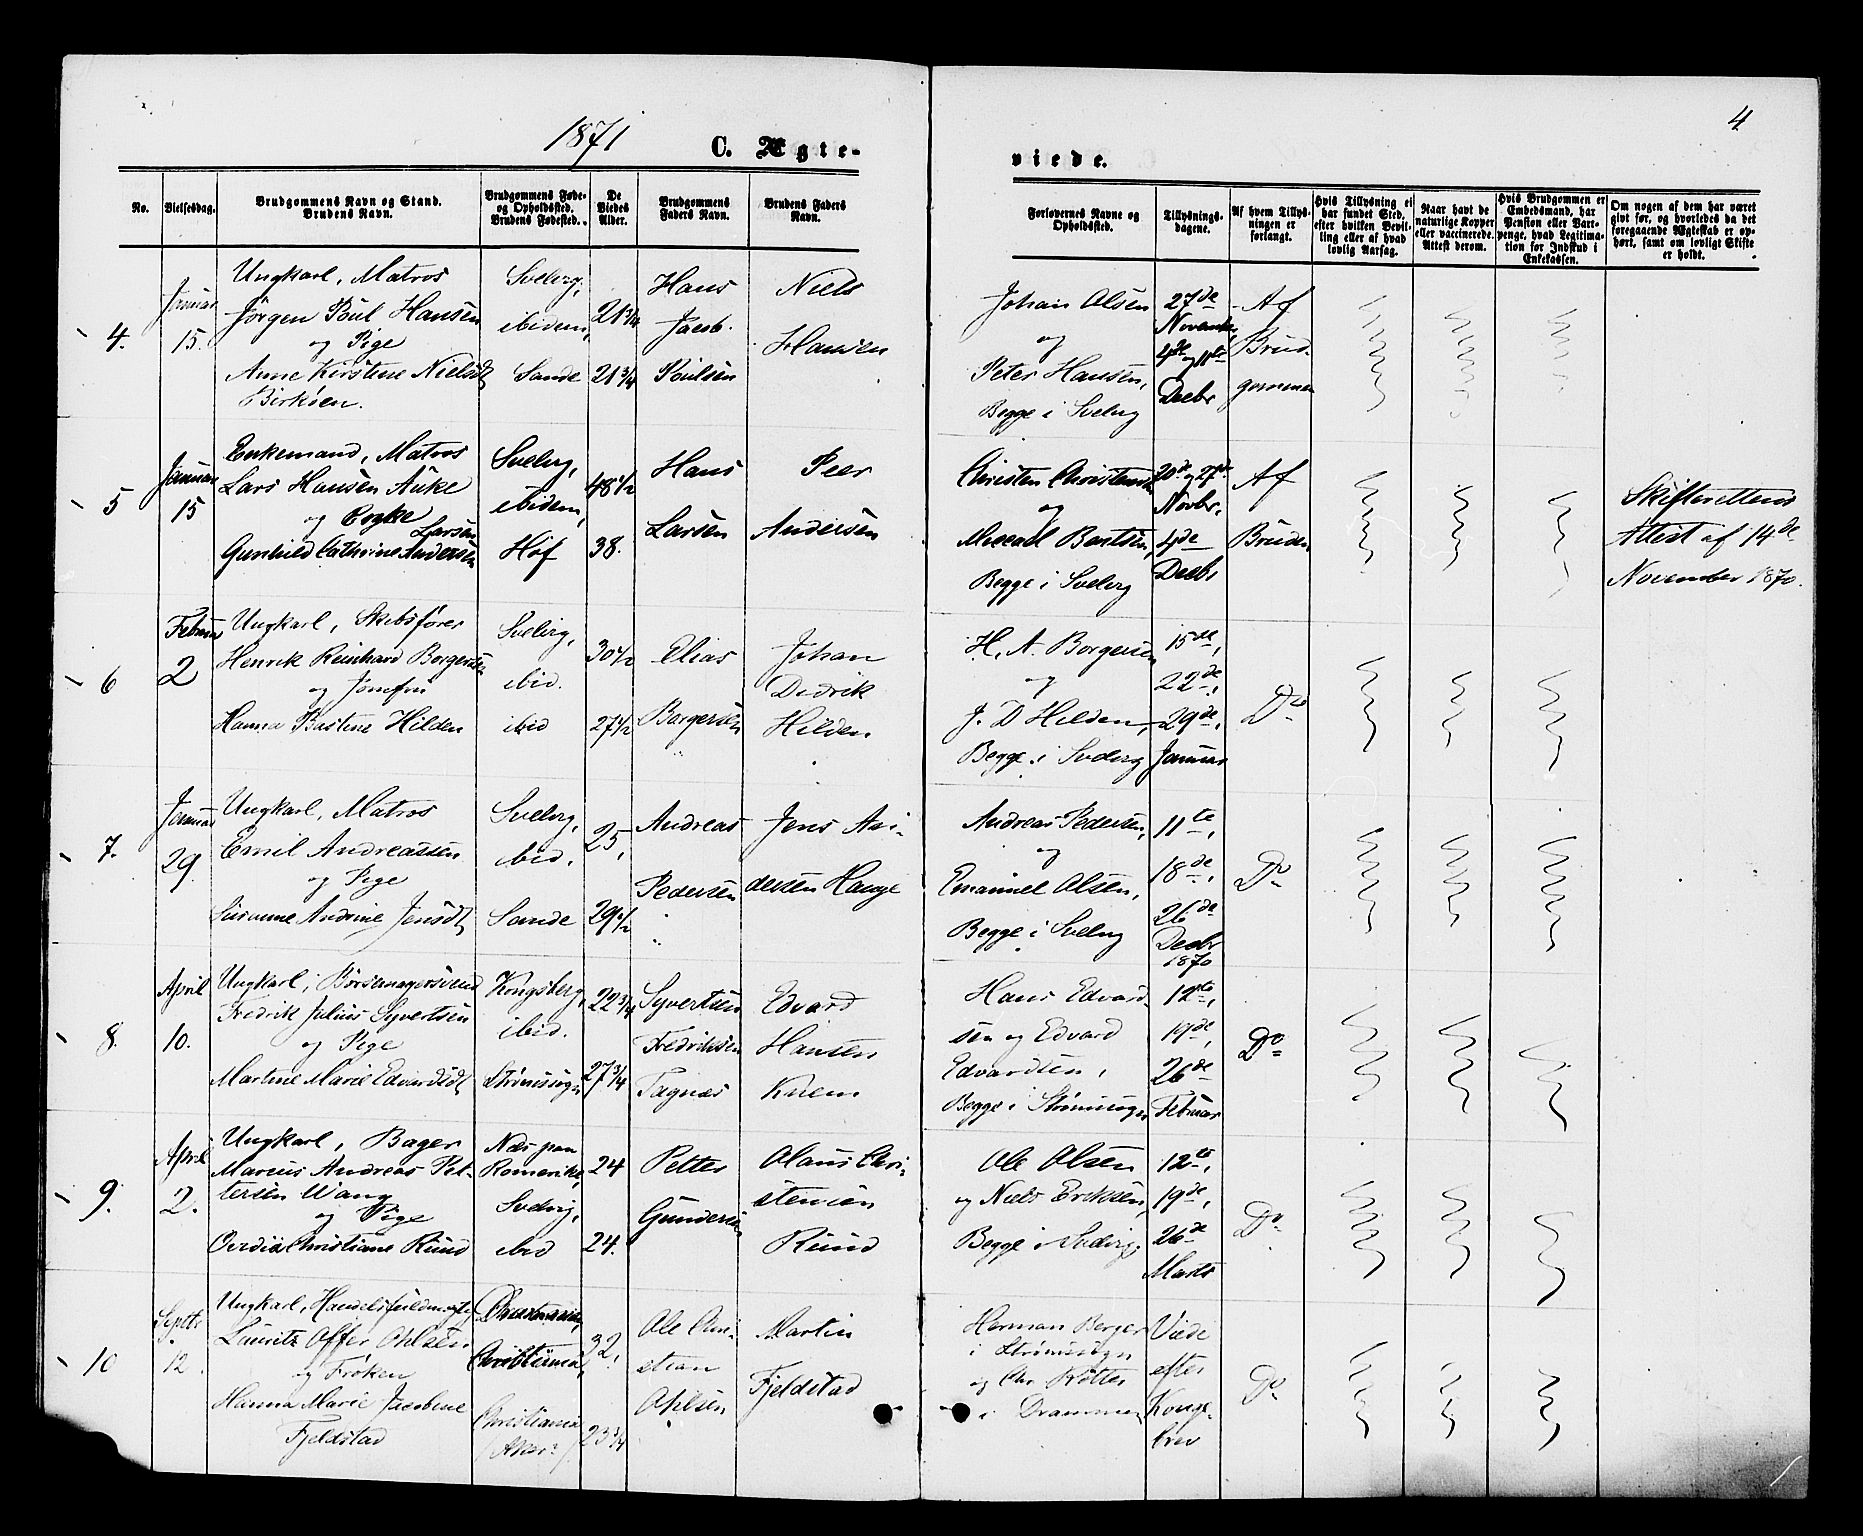 1871
4
C. Ægte-
viede.
No.
Vielsesdag.
Brudgommens Navn og Stand.
Brudens Navn.
Brudgommens Føde-
og Opholdsted.
Brudens Fødested.
De
Viedes
Alder.
Brudgommens
Faders Navn.
Brudens Faders
Navn.
Forlovernes Navne og
Opholdsted.
Tillysnings-
dagene.
Af hvem Tillys-
ningen er
forlangt.
Hvis Tillysning ei
har fundet Sted,
efter hvilken Bevil-
ling eller af hvad
lovlig Aarsag.
Naar havt de
naturlige Kopper
eller vaccinerede.
Attest derom.
Hvis Brudgommen er
Embedsmand, har
Pension eller Vart-
penge, hvad Legitima-
tion for Indskud i
Enkekassen.
Om nogen af dem har været
givt før, og hvorledes da det
foregaaende Ægteskab er op-
hørt, samt om lovligt Skifte
er holdt.
4.
Januar
15.
Ungkarl, Matros
Jørgen Poul Hansen
og Pige
Anne Kirstine Nielsdt
Svelvig,
ibidem,
Sande
21 3/4
21 3/4
Hans
Jacob
Poulsen
Niels
Hansen
Johan Olsen
og
Peter Hansen,
Begge i Svelvig
27de
November,
4de og 11te
Decbr
Af
Brud-
gommen
5
Januar
15
Enkemand, Matros
Lars Hansen Auke
og Enke
Larsen
Gunhild Cathrine Andersen
Svelvig,
ibidem,
Hof
48 1/2
38.
Hans
Larsen
Peer
Andersen
Christen Christensen
og
Bartsen,
Begge i Svelvig
20de og 27de
Novbr.
4de
Decbr
Af
Bruden
Skifterettens
Attest af 14de
November 1870.
6
Februar
2
Ungkarl, Skibsfører
Henrik Reinhard Borgersen
og Jomfru
Hanna Bastine Hilden
Svelvig,
ibid.
ibid
30 1/2
27 1/2
Elias
Borgersen
Johan
Didrik
Hilden
H. A. Borgersen
og
J. D Hilden,
Begge i Svelvig
15de,
22de,
29de,
Januar
Do
7.
Januar
29.
Ungkarl, Matros
Emil Andreassen
og Pige
Susanne Andrine Jensdt
Svelvig,
ibid,
Sande
25,
29 1/2
Andreas
Pedersen
Jens An-
dersen Hauge
Andreas Pedersen,
og
Emanuel Olsen,
Begge i Svelvig
11te,
18de,
26de
Decbr
1870
Do
8.
April
10.
Ungkarl, Børsemagersvend
Fredrik Julius Syvertsen
og Pige
Martine Marie Edvardsdt
Kongsberg,
ibid.
Strømssogn
22 3/4
27 3/4
Syvertsen
Fredriksen
Tagnæs
Edvard
Hansen
Knem
Hans Edvard-
sen og Edvard
Edvardsen,
Begge i Strømssogn
12te,
19de,
26de
Februar
Do
9.
April
2.
Ungkarl, Bager
Marius Andreas Pet-
tersen Wang
og Pige
Ovidia Christiane Ruud
Næs paa
Romerike,
Svelvig,
ibid
24
24.
Petter
Gundersen
Olaus Chri-
stensen
Ruud
Ole Olsen
og Niels Eriksen,
Begge i Svelvig.
12te,
19de,
26de
Marts
Do
10
Septbr
12.
Ungkarl, Handelsfuldmægtig
Lauritz Offer Ohlsen
og Frøken
Hanna Marie Jacobine
Fjeldstad
Christiania,
Christiania
Aker?
32,
23 3/4
Ole Chri-
stian
Ohlsen
Martin
Fjeldstad
Herman Berger
i Strømssogn
og Chr. Køtter
i Drammen
Viede
efter
Konge-
brev
Do